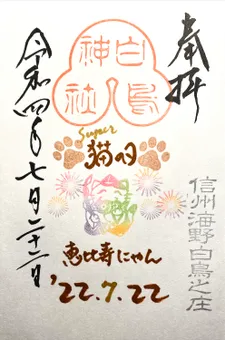 奉拝
白鳥神社
Super
猫の日
信州海野白鳥之庄
恵比寿にゃん
'22.7.22
令和四年七月二十二日